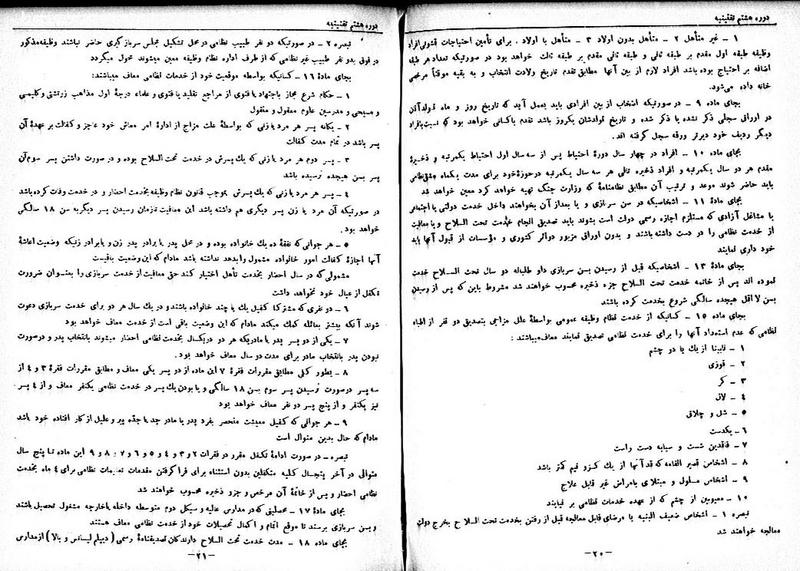 دوره هشتم تقنینیه
۱ - غیر متأهل ۲ - متأهل بدون اولاد ۳ - متأهل با اولاد . برای تأمین احتیاجات قشونی افراد
وظیفه طبقه اول مقدم بر طبقه ثانی و طبقه ثانی مقدم بر طبقه ثالث خواهد بود در صورتیکه تعداد هر طبقه
اضافه بر احتیاج بوده باشد افراد لازم از بین آنها مطابق تقدم تاریخ ولادت انتخاب و به بقیه موقتاً مرخصی
خانه داده می‌شود.
بجای ماده ۹ - در صورتیکه انتخاب از بین افرادی باید بعمل آید که تاریخ روز و ماه تولد آنان
در اوراق سجلی ذکر نشده یا ذکر شده و تاریخ تولدشان یکروز باشد تقدم باکسانی خواهد بود که نسبت بافراد
دیگر ردیف خود دیرتر ورقه سجل گرفته اند.
بجای ماده ۱۰ - افراد در چهار سال دورهٔ احتیاط پس از سه سال اول احتیاط یکمرتبه و ذخیرهٔ
مقدم هر دو سال یکمرتبه و افراد ذخیره ثالی هر سه سال یکمرتبه در حوزهٔ خود برای مدت یکماه مشق نظامی
باید حاضر شوند موعد و ترتیب آن مطابق نظامنامهٔ که وزارت جنگ تهیه خواهد کرد معین خواهد شد
بجای مادهٔ ۱۱ - اشخاصیکه در سن سربازی و یا بعد از آن بخواهند داخل خدمت دولتی یا اجتماعی
یا مشاغل آزادی که مستلزم اجازه رسمی دولت است بشوند باید تصدیق انجام خدمت تحت السلاح و یا معافیت
از خدمت نظامی را در دست داشته باشند و بدون اوراق مزبور دوائر کشوری و مؤسسات از قبول آنها باید
خود داری نمایند
بجای مادهٔ ۱۳ - اشخاصیکه قبل از رسیدن بسن سربازی داو طلبانه دو سال تحت السلاح خدمت
نموده اند پس از خاتمه خدمت تحت السلاح جزء ذخیره محسوب خواهند شد مشروط باین که پس از رسیدن
بسن لااقل هیجده سالگی شروع بخدمت کرده باشند
بجای ماده ۱۵ - کسانیکه از خدمت نظام وظیفه عمومی بواسطهٔ علل مزاجی بتصدیق دو نفر از اطباء
نظامی که عدم استعداد آنها را برای خدمت نظامی تصدیق نمایند معاف میباشند :
۱ - نابینا از یك یا دو چشم
۲ - قوزی
۳ - کر
۴ - لال
۵ - شل و چلاق
۶ - یکدست
۷ - فاقدین شست و سبابه دست راست
۸ - اشخاص قصیر القامه که قد آنها از یك گز و نیم کمتر باشد
۹ - اشخاص مسلول و مبتلای بامراض غیر قابل علاج
۱۰ - معیوبین از چشم که از عهده خدمات نظامی بر نیایند
تبصره ۱ - اشخاص ضعیف البنیه یا مرضای قابل معالجه قبل از رفتن بخدمت تحت السلاح بخرج دولت
معالجه خواهند شد
-۲۰-
دوره هشتم تقنینیه
تبصره ۲ - در صورتیکه دو نفر طبیب نظامی در محل تشکیل مجلس سرباز گیری حاضر نباشند وظیفه مذکور
در فوق بدو نفر طبیب غیر نظامی که از طرف اداره نظام وظیفه معین میشوند محول میگردد
بجای ماده ۱۶ - کسانیکه بواسطه موقعیت خود از خدمات نظامی معاف میباشند:
۱ - حکام شرع مجاز باجتهاد یا فتوی از مراجع تقلید یا فتوی و علماء درجهٔ اول مذاهب زرتشتی و کلیمی
و مسیحی و مدرسین علوم معقول و منقول
۲ - یگانه پسر هر مرد یا زنی که بواسطهٔ علت مزاج از ادارهٔ امر معاش خود عاجز و کفالت بر عهدهٔ آن
پسر باشد در تمام مدت کفالت
۳ - پسر دوم هر مرد یا زنی که یك پسرش در خدمت تحت السلاح بوده و در صورت داشتن پسر سوم آن
پسر بسن هیجده نرسیده باشد
۴ - پسر هر مرد یا زنی که یك پسرش بموجب قانون نظام وظیفه بخدمت احضار و در خدمت وفات کرده باشد
در صورتیکه آن مرد یا زن پسر دیگری هم داشته باشد این معافیت تا زمان رسیدن پسر دیگر به سن ۱۸ سالگی
خواهد بود.
۵ - هر جوانی که نفقه ده یك خانواده بوده و در محل پدر یا برادر پدر زن و یا برادر زنیکه وضعیت اعاشهٔ
آنها اجازهٔ کفالت امور خانواده مشمول را بدهد نداشته باشد مادام که این وضعیت باقیست
مشمولی که در سال احضار بخدمت تأهل اختیار کنند حق معافیت از خدمت سربازی را بعنوان ضرورت
تکفل از عیال خود نخواهد داشت
۶ - دو نفری که مشترکا کفیل یك یا چند خانواده باشند و در یك سال هر دو برای خدمت سربازی دعوت
شوند آنکه بیشتر بعائله کمك میکند مادام که این وضعیت باقی است از خدمت معاف خواهد بود
۷ - یکی از دو پسر پدر یا مادریکه هر دو در یکسال بخدمت نظامی احضار میشوند بانتخاب پدر و در صورت
نبودن پدر بانتخاب مادر برای مدت دو سال معاف خواهد بود.
۸ - بطور کلی مطابق مقررات فقرهٔ ۷ این ماده از دو پسر یکی معاف و مطابق مقررات فقرهٔ ۳ و ۴ از
سه پسر در صورت نرسیدن پسر سوم بسن ۱۸ سالگی و یا بودن یك پسر در خدمت نظامی یکنفر معاف و از ۴ پسر
نیز یکنفر و از پنج پسر دو نفر معاف خواهد بود
۹ - هر جوانی که کفیل معیشت منحصر بفرد پدر یا مادر جد یا جدّه پیر و علیل از کار افتاده خود باشد
مادام که حال بدین منوال است
تبصره - در صورت ادامهٔ تکفل مقرر در فقرات ۲ و ۳ و ۴ و ۵ و ۶ و ۷ و ۸ و ۹ این ماده تا پنج سال
متوالی در آخر پنجسال کلیه متکفلین بدون استثناء برای فرا گرفتن مقدمات تعلیمات نظامی برای ۴ ماه بخدمت
نظامی احضار و پس از خاتمهٔ آن مرخص و جزو ذخیره محسوب خواهند شد
بجای مادهٔ ۱۷ - محصلینی که در مدارس عالیه و سیکل دوم متوسطه داخله یا خارجه مشغول تحصیل باشند
و بسن سربازی برسند تا موقع اتمام و اکمال تحصیلات خود از خدمت نظامی معاف هستند
بجای ماده ۱۸ - مدت خدمت تحت السلاح دارندگان تصدیقنامهٔ رسمی ( دیپلم لیسانس و بالا ) از مدارس
-۲۱-